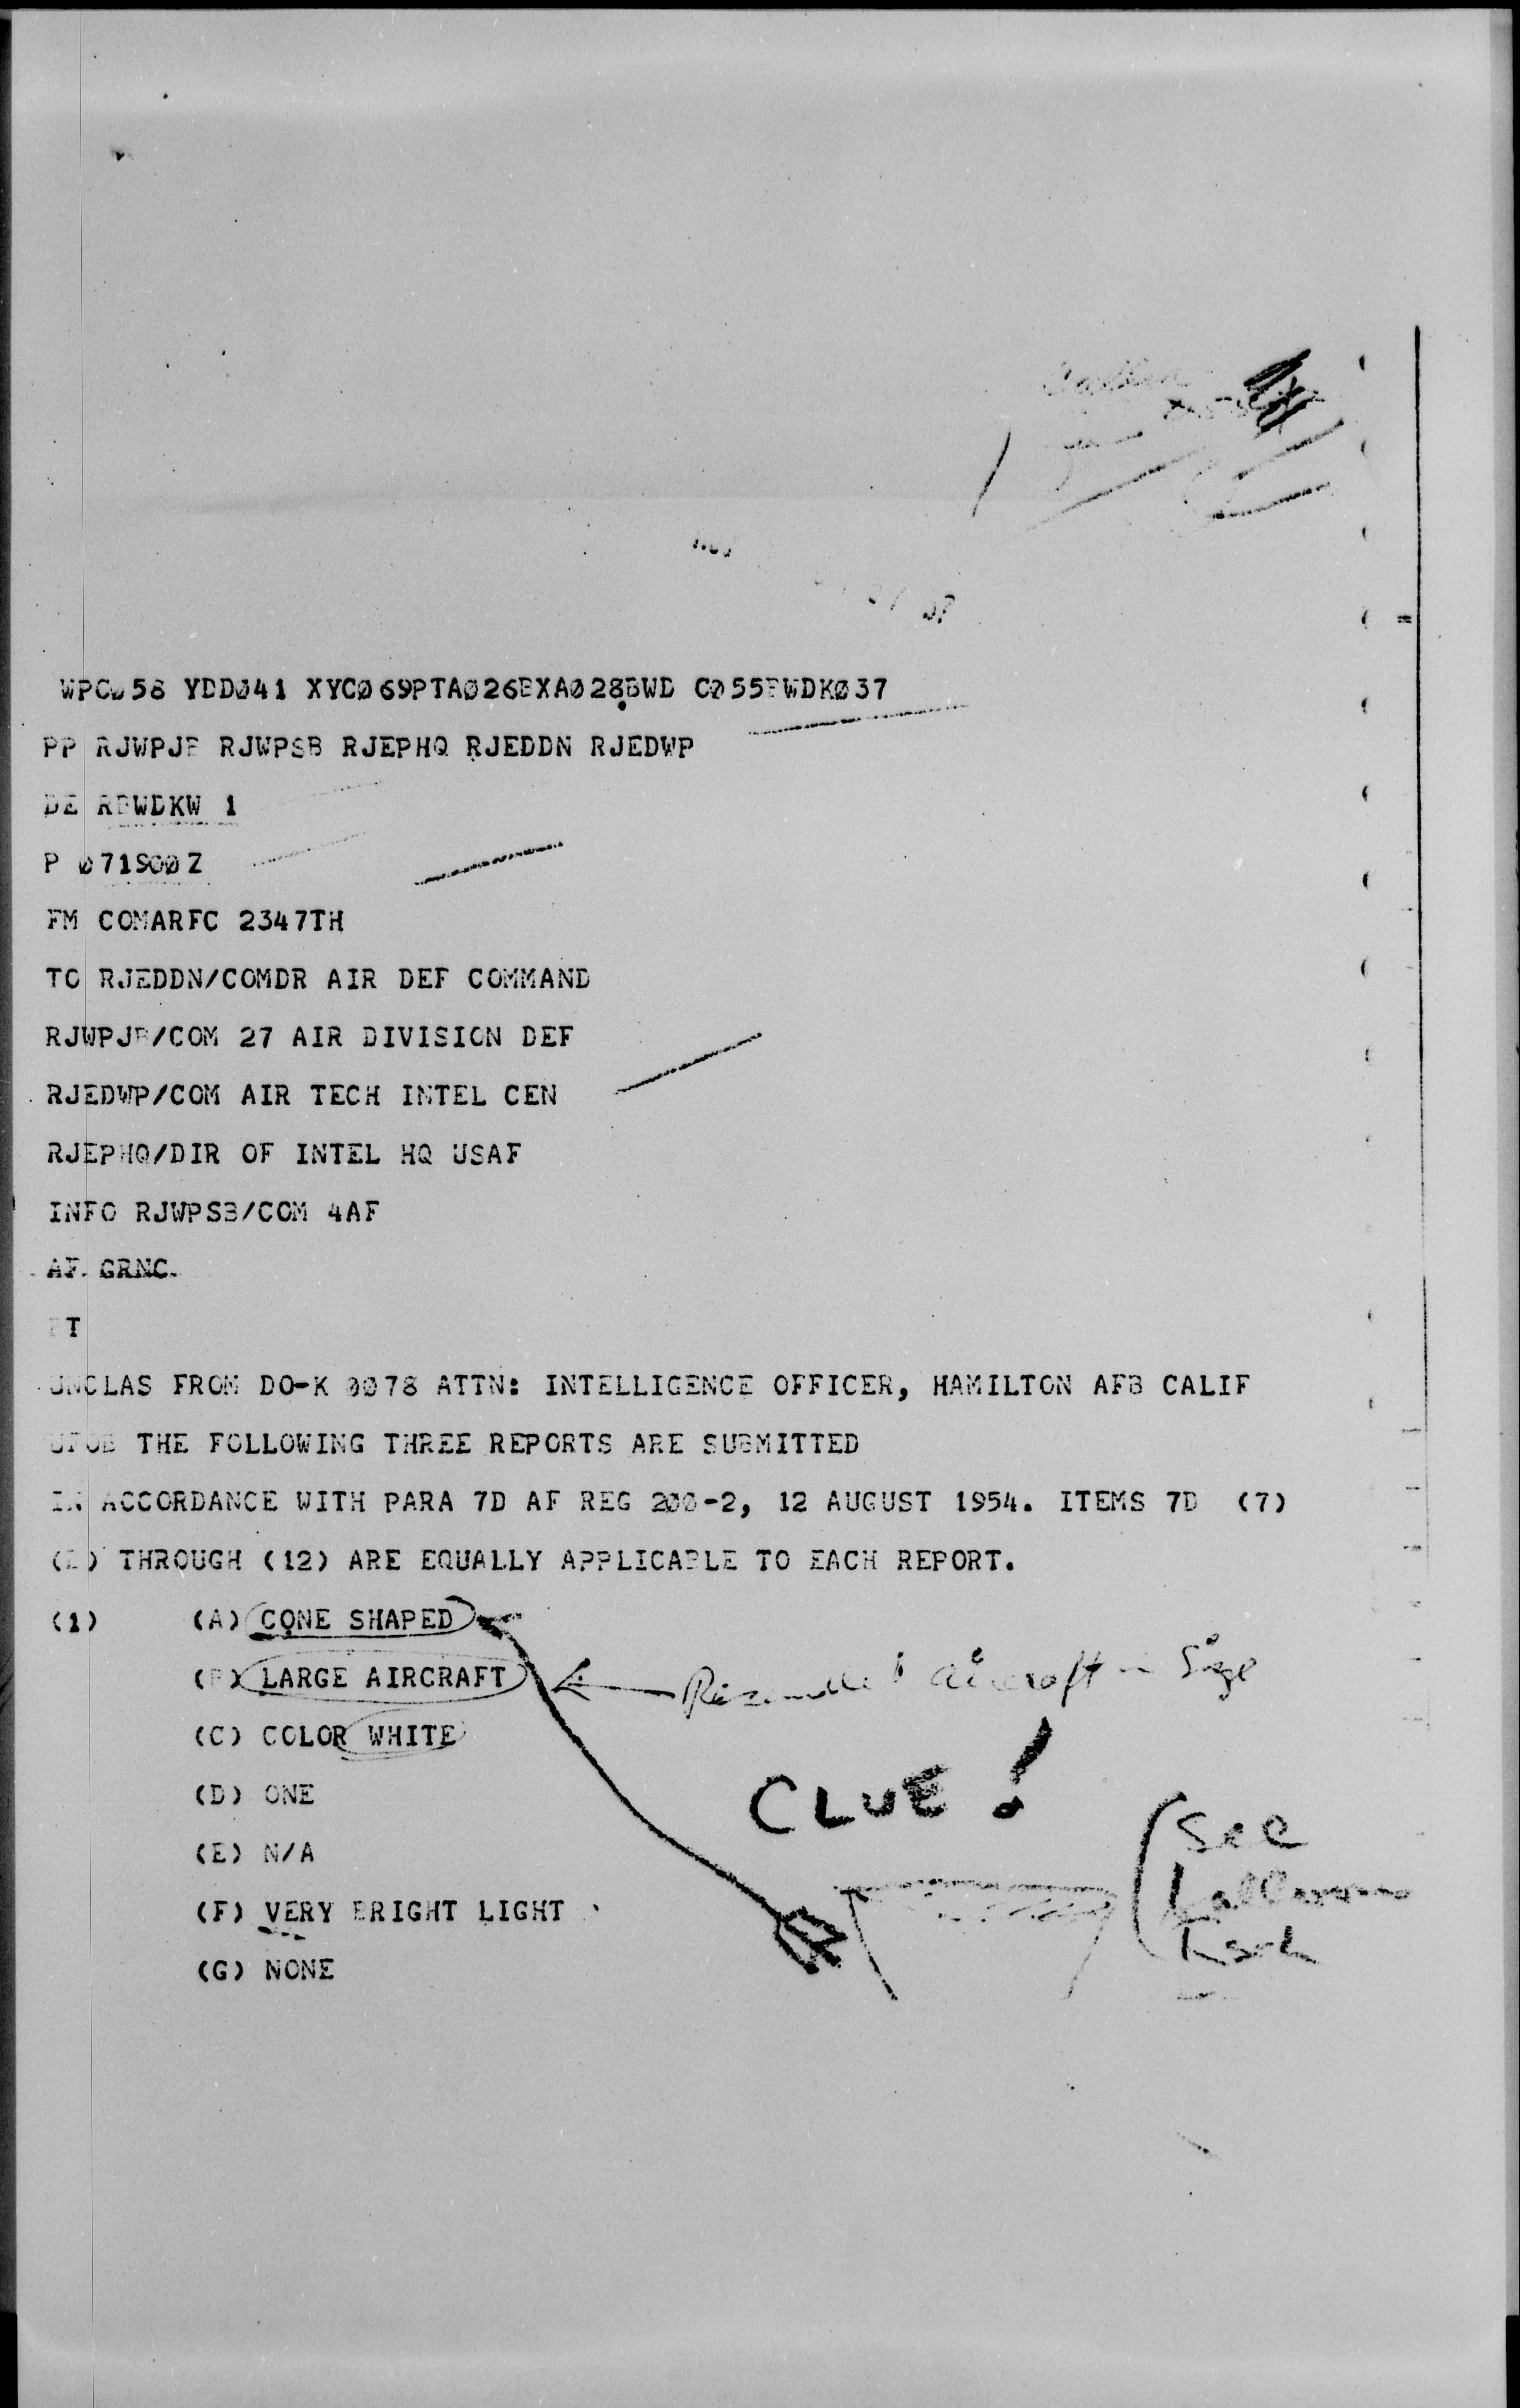 WPC058 YDD041 XYC069PTA026BXA028BWD C055BWDK037
PP RJWPJB RJWPSB RJEPHQ RJEDDN RJEDWP
DE RBWDKW 1
P 071900Z
FM COMARFC 2347TH
TO RJEDDN/COMDR AIR DEF COMMAND
RJWPJB/COM 27 AIR DIVISION DEF
RJEDWP/COM AIR TECH INTEL CEN
RJEPHQ/DIR OF INTEL HQ USAF
INFO RJWPSB/COM 4AF
AF GRNC
BT
UNCLAS FROM DO-K 0078 ATTN: INTELLIGENCE OFFICER, HAMILTON AFB CALIF
UFOB THE FOLLOWING THREE REPORTS ARE SUBMITTED
IN ACCORDANCE WITH PARA 7D AF REG 200-2, 12 AUGUST 1954. ITEMS 7D (7)
THROUGH (12) ARE EQUALLY APPLICABLE TO EACH REPORT.
(1) (A) CONE SHAPED
(B) LARGE AIRCRAFT aircraft in Size
(C) COLOR WHITE
(D) ONE CLUE!
(E) N/A See
(F) VERY BRIGHT LIGHT
(G) NONE